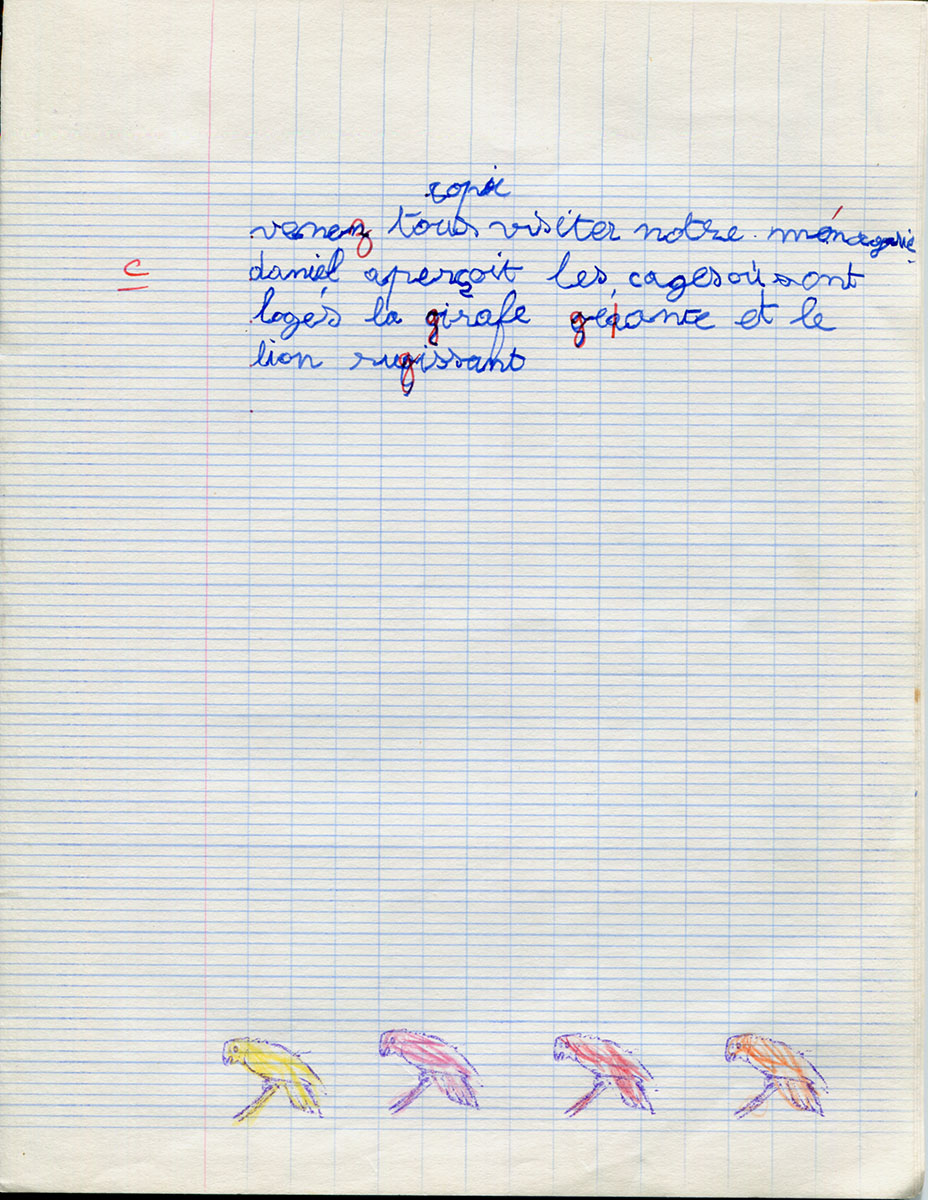 copie
venez tous visiter notre ménagerie
c
daniel aperçoit les cages où sont
logés la girafe géante et le
lion rugissant